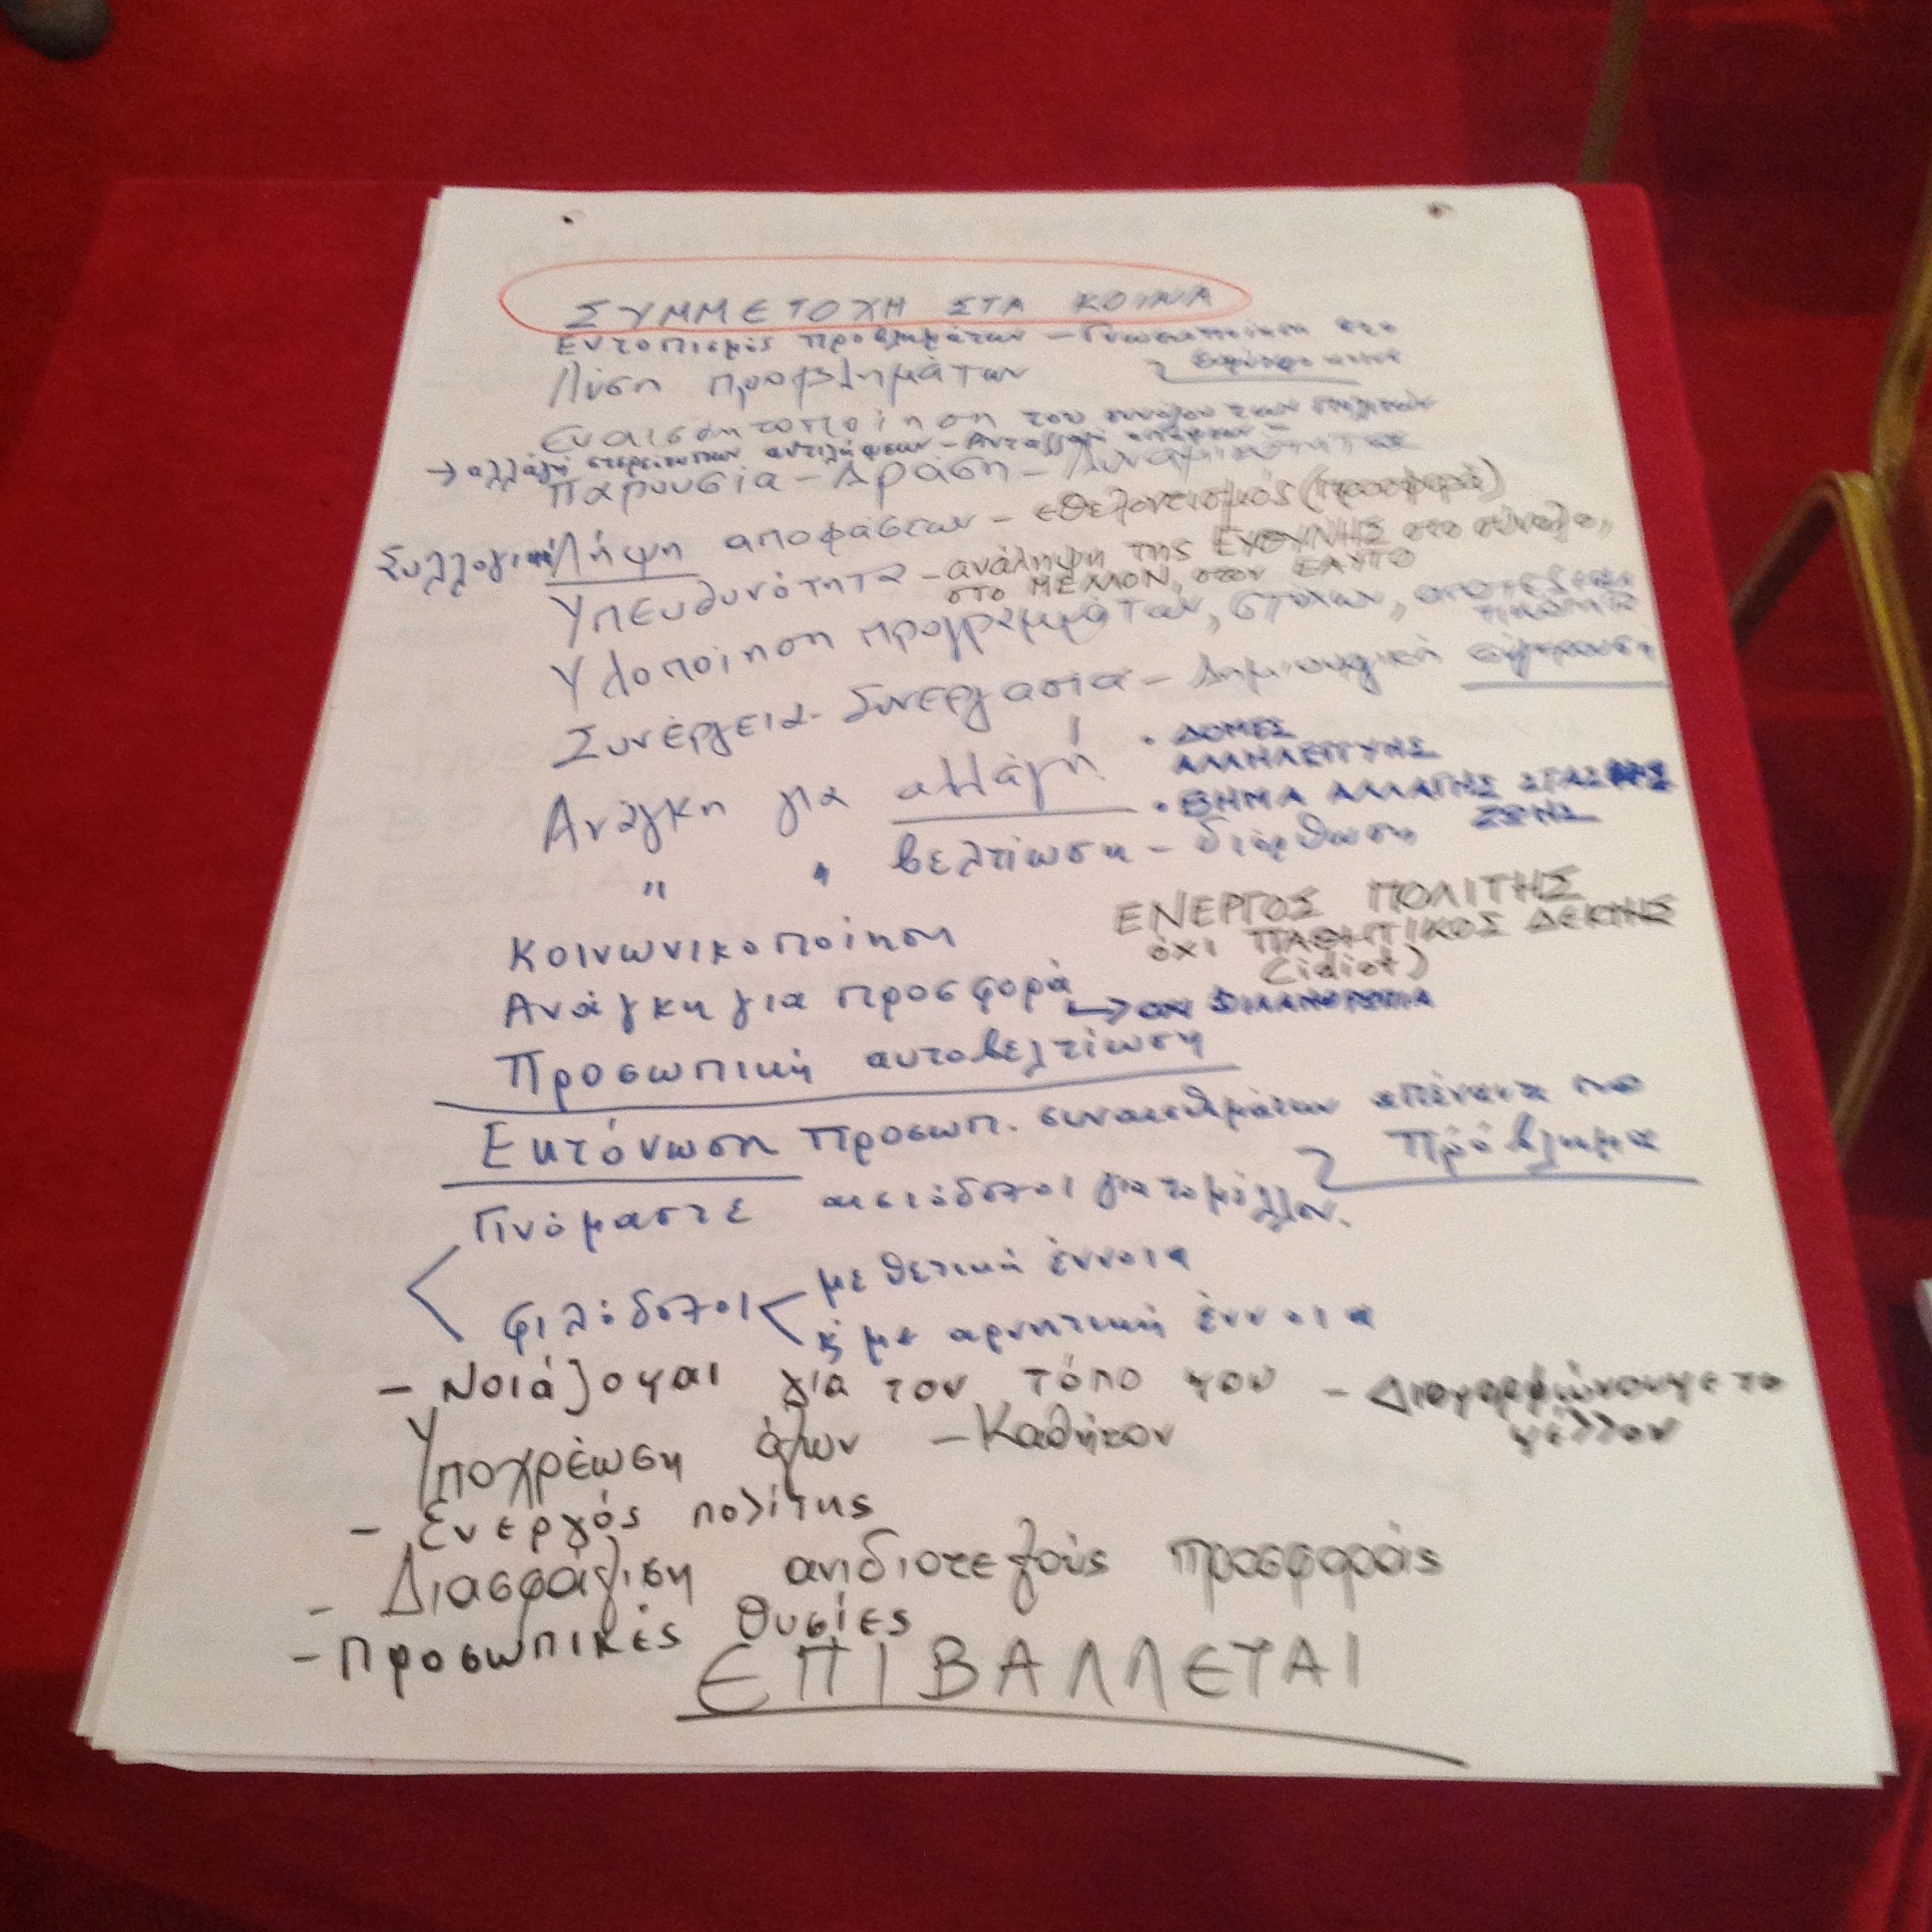 ΣΥΜΜΕΤΟΧΗ ΣΤΑ ΚΟΙΝΑ
Εντοπισμός προβλημάτων - Γνωστοποίηση στο
Λύση προβλημάτων
Ευαισθητοποίηση του συνόλου των πολιτών
→ αλλαγή στερεότυπων αντιλήψεων - Ανταλλαγή απόψεων -
Παρουσία - Δράση - Δυναμικότητας
Συλλογική Λήψη αποφάσεων - εθελοντισμός (προσφορά)
Υπευθυνότητα - ανάληψη της ΕΥΘΥΝΗΣ στο σύνολο,
στο ΜΕΛΛΟΝ, στον ΕΑΥΤΟ
Υλοποίηση προγραμμάτων, στόχων,
Συνέργεια - Συνεργασία - Δημιουργική σύγκρουση
Ανάγκη για αλλαγή!
• ΔΟΜΕΣ
ΑΛΛΗΛΕΓΓΥΗΣ
• ΒΗΜΑ ΑΛΛΑΓΗΣ ΣΤΑΣΗΣ
ΖΩΗΣ
" " βελτίωση - διόρθωση
Κοινωνικοποίηση
ΕΝΕΡΓΟΣ ΠΟΛΙΤΗΣ
όχι ΠΑΘΗΤΙΚΟΣ ΔΕΚΤΗΣ
(idiot)
Ανάγκη για προσφορά → όχι ΦΙΛΑΝΘΡΩΠΙΑ
Προσωπική αυτοβελτίωση
Εκτόνωση προσωπ. συναισθημάτων απέναντι στο
Πρόβλημα
Γινόμαστε αισιόδοξοι για το μέλλον.
φιλόδοξοι με θετική έννοια
ή με αρνητική έννοια
- Νοιάζομαι για τον τόπο μου - Διαμορφώνουμε το
μέλλον
Υποχρέωση όλων - Καθήκον
- Ενεργός πολίτης
- Διασφάλιση ανιδιοτελούς προσφοράς
- Προσωπικές θυσίες
ΕΠΙΒΑΛΛΕΤΑΙ